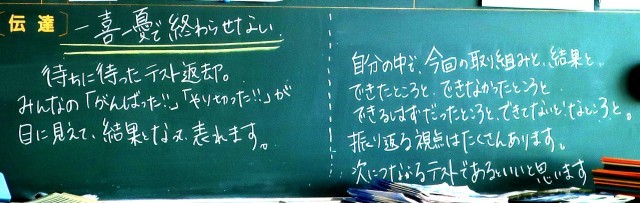 伝達
一喜一憂で終わらせない
待ちに待ったテスト返却。
みんなの「がんばった!!」「やりきった!!」が
目に見えて、結果となって表れます。
自分の中で、今回の取り組みと、結果と。
できたところと、できなかったところと
できるはずだったところと、できてないとなところと。
振り返る視点はたくさんあります。
次につながるテストであるといいと思います